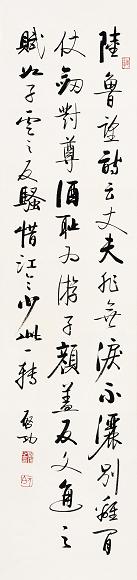 陸魯望詩云丈夫非無淚不灑別離間
仗劍對尊酒恥為游子顏蓋反文通之
賦如子雲之反騷惜江令少此一轉
啟功